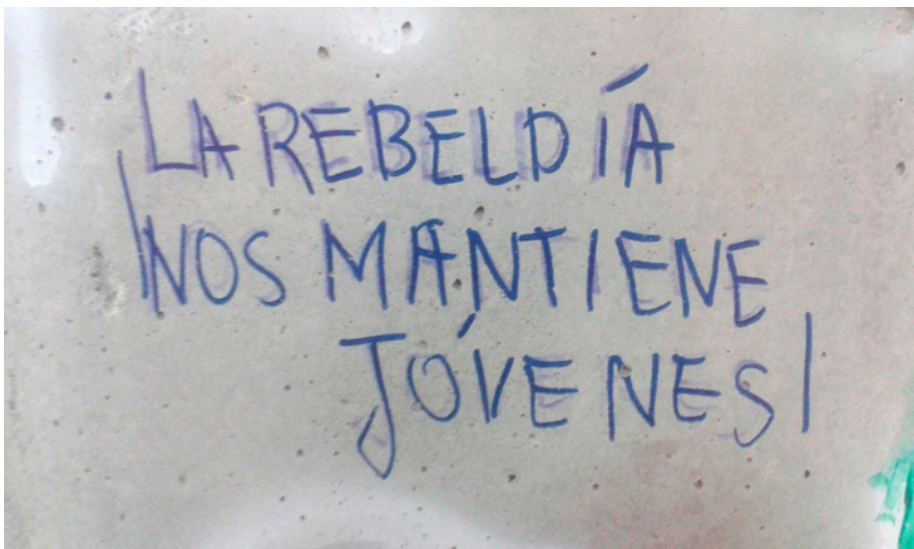 LA REBELDÍA
¡NOS MANTIENE
JÓVENES!